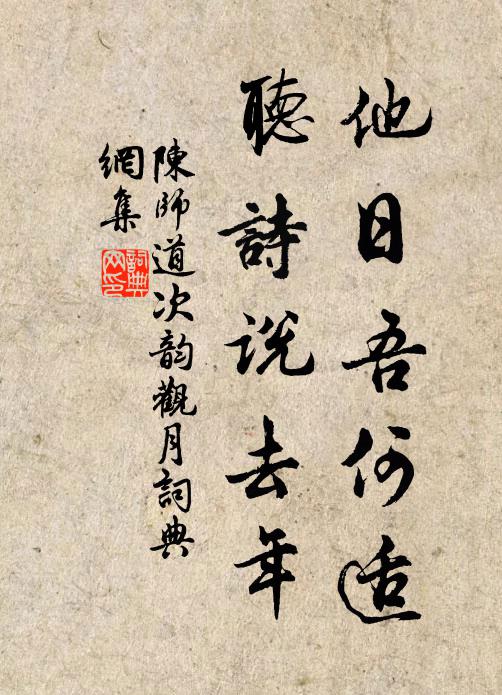 他日吾何适
聽詩説去年
陳師道次韵觀月詞典
網集
詞典
网印